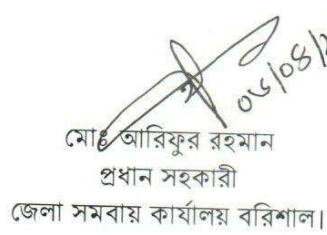 ০৬/০৪/
মোঃ আরিফুর রহমান
প্রধান সহকারী
জেলা সমবায় কার্যালয় বরিশাল।